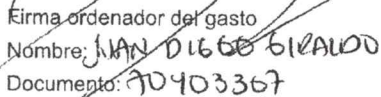 Firma ordenador del gasto
Nombre: JUAN DIEGO GIRALDO
Documento: 70903367